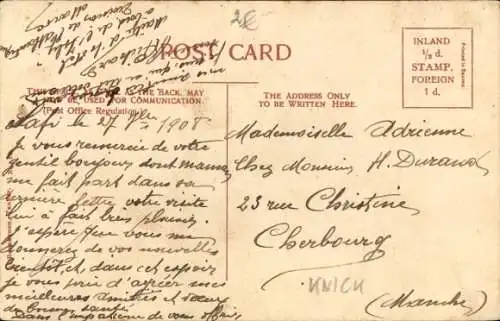 2€
POST CARD
THIS SPACE, AS WELL AS THE BACK, MAY
NOW BE USED FOR COMMUNICATION.
(Post Office Regulation).
THE ADDRESS ONLY
TO BE WRITTEN HERE.
INLAND
½ d.
STAMP.
FOREIGN
1 d.
Printed in Bavaria.
le 27 1908
Je vous remercie de votre
gentil bonjour dont maman
me fait part dans sa
dernière lettre votre visite
lui à fait bien plaisir.
J'espère que vous me
donnerez de vos nouvelles
bientôt, et dans cet espoir
je vous prie d'agréer mes
meilleures amitiés et vœux
de bonne santé.
Dans l'impatience de vous
Mademoiselle Adrienne
Chez Monsieur H. Durand
23 rue Christine
Cherbourg
KNICK
(Manche)